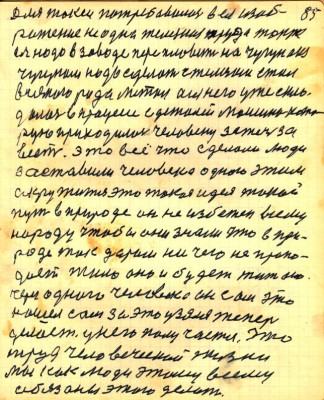 85
для такси потребовалось все изоб-
ретение не одна техника труда то же
надо в заводе переплавить на чугун
чугуном надо сделать стальной стал
всякого рода метки а из него уже
в процессе с деталей машина кото
рую приходилось человеку за
вест. Это всё что сделали люди
заставили человека одного этим
окружится это такая идея такой
путь в природе он не избежен всему
народу чтобы они знали это в при-
роде так даром ни чего не пропа-
дает жило оно и будет жить оно.
через одного человека он сам это
нашел сам за это взялся теперь
делает. у него получается. Это
труд человеческой жизни
мы как люди этому всему
обязаны этого делать.